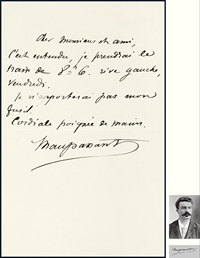 Cher monsieur et ami,
C'est entendu, je prendrai le
train de 8h. rive gauche,
vendredi.
Je n'apporterai pas mon
fusil.
Cordiale poignée de mains.
Maupassant
Maupassant